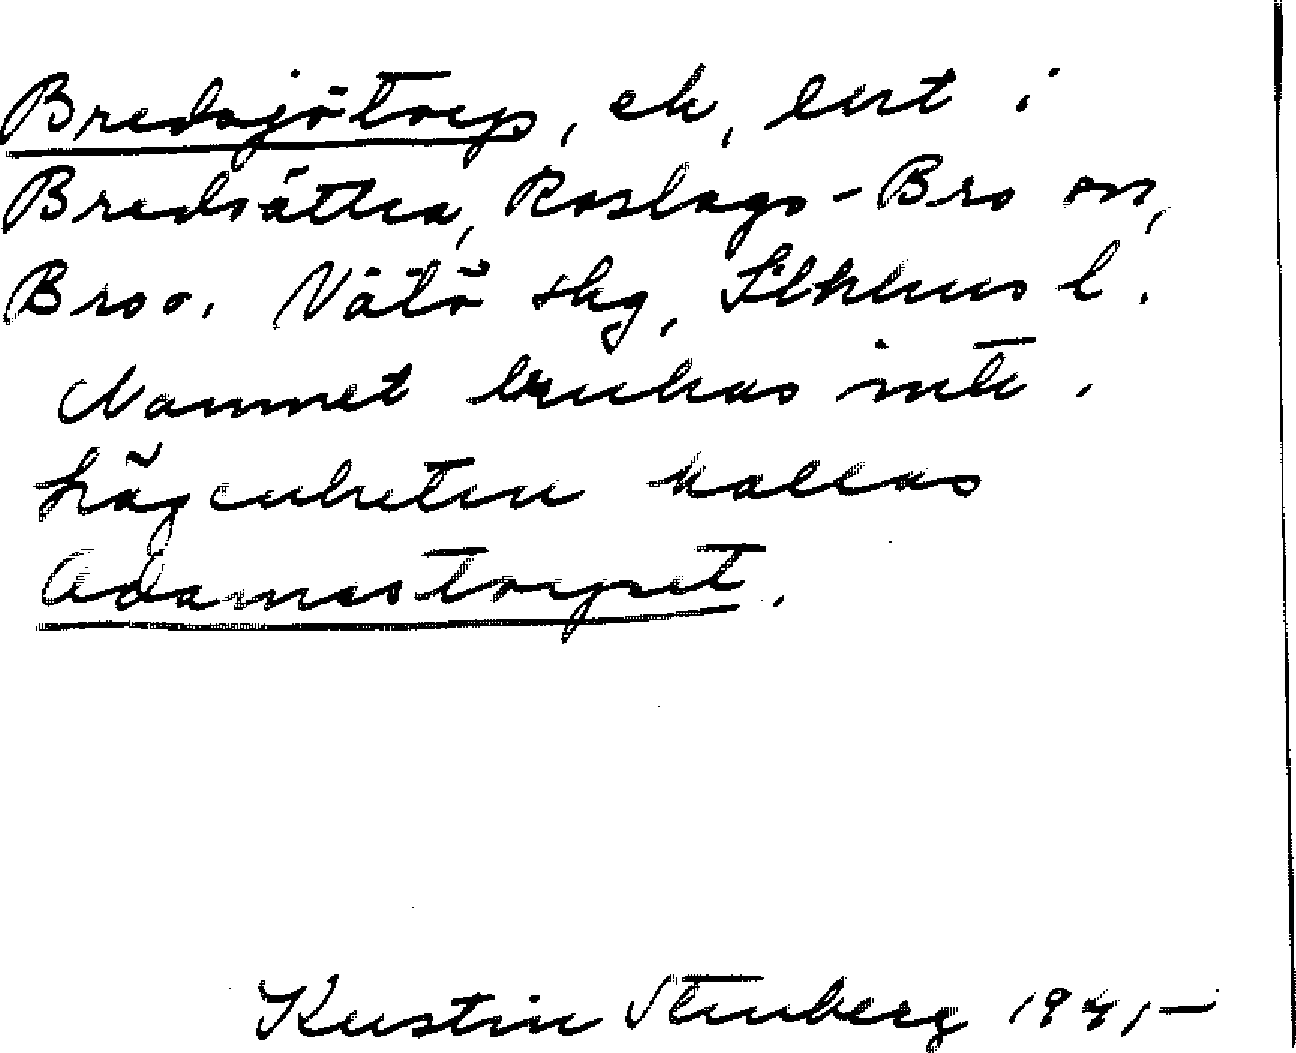 Bredsjötorp, ek, lert i
Bredsättra, Roslags-Bro sn,
Bro o. Vätö skg, Sthlms l.
Namnet brukas inte.
Lägenheten kallas
Adamstorpet.
Kerstin Stenberg 1941